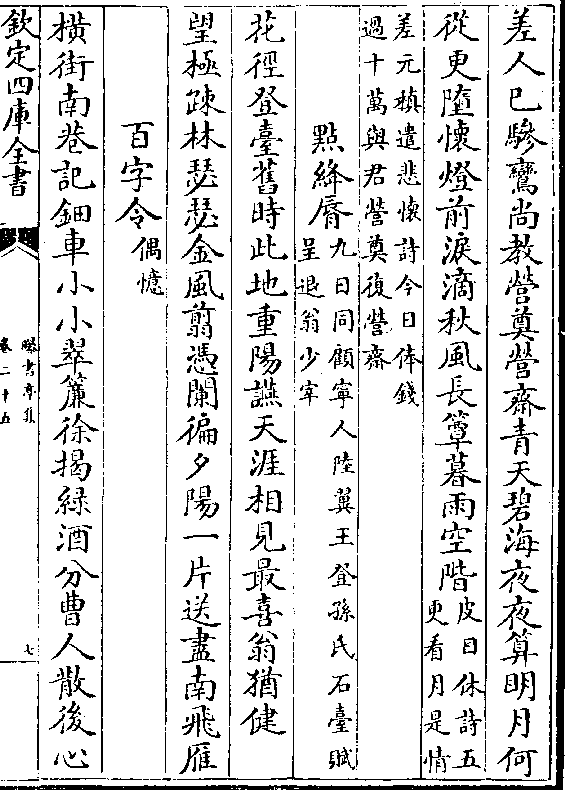 差人已驂鸞尚教營奠營齋青天碧海夜夜算明月何
從更墮懷燈前淚滴秋風長簟暮雨空階皮日休詩五
更看月是情
差元稹遣悲懷詩今日俸錢
過十萬與君營奠復營齋
點絳脣九日同顧寧人陸翼王登孫氏石臺賦
呈退翁少宰
花徑登臺舊時此地重陽讌天涯相見最喜翁猶健
望極疎林瑟瑟金風翦憑闌徧夕陽一片送盡南飛雁
百字令偶憶
橫街南巷記鈿車小小翠簾徐揭綠酒分曹人散後心
欽定四庫全書
曝書亭集
卷二十五
七